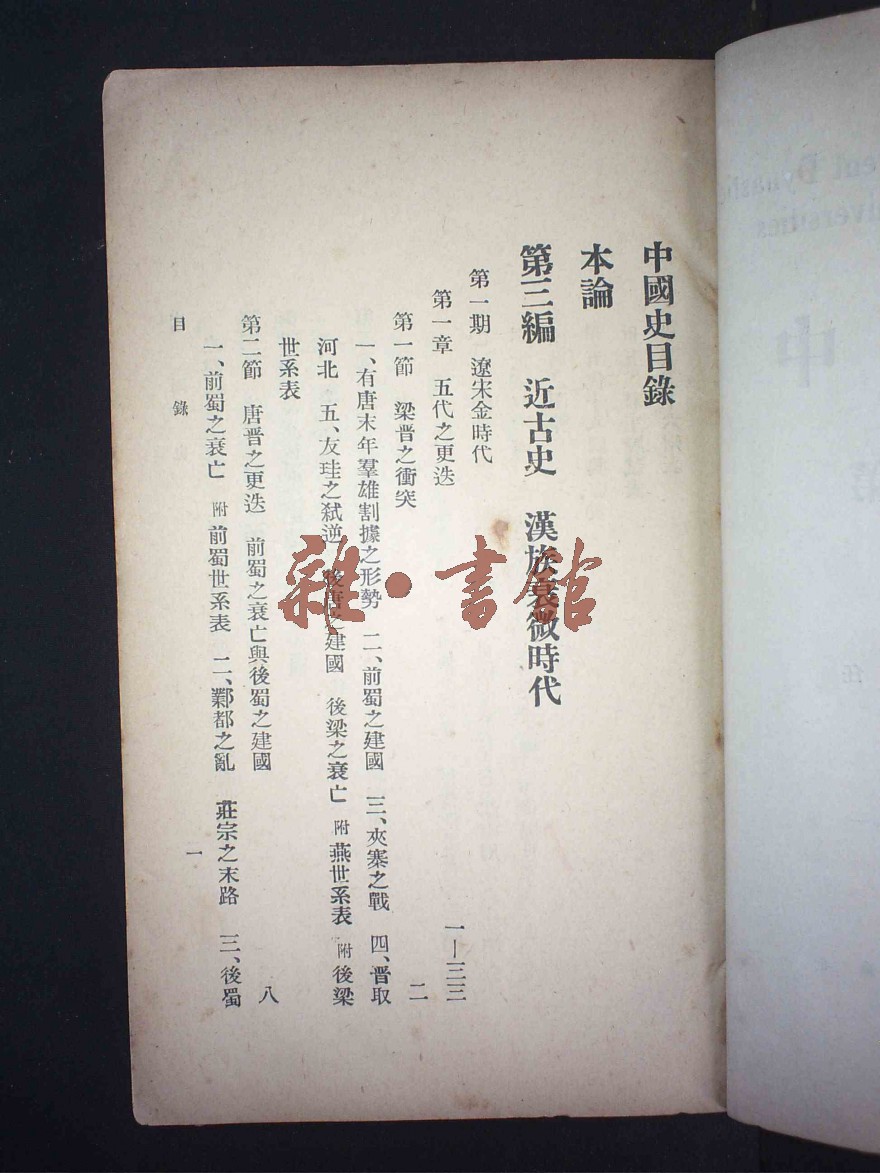 中國史目錄
本論
第三編 近古史 漢族衰微時代
第一期 遼宋金時代
第一章 五代之更迭 一—三三
第一節 梁晉之衝突 二
一、有唐末年羣雄割據之形勢 二、前蜀之建國 三、夾寨之戰 四、晉取
河北 五、友珪之弑逆 後唐之建國 後梁之衰亡 附燕世系表 附後梁
世系表
第二節 唐晉之更迭 前蜀之衰亡與後蜀之建國 八
一、前蜀之衰亡 附前蜀世系表 二、鄴都之亂 莊宗之末路 三、後蜀
目錄 一
雜·書館